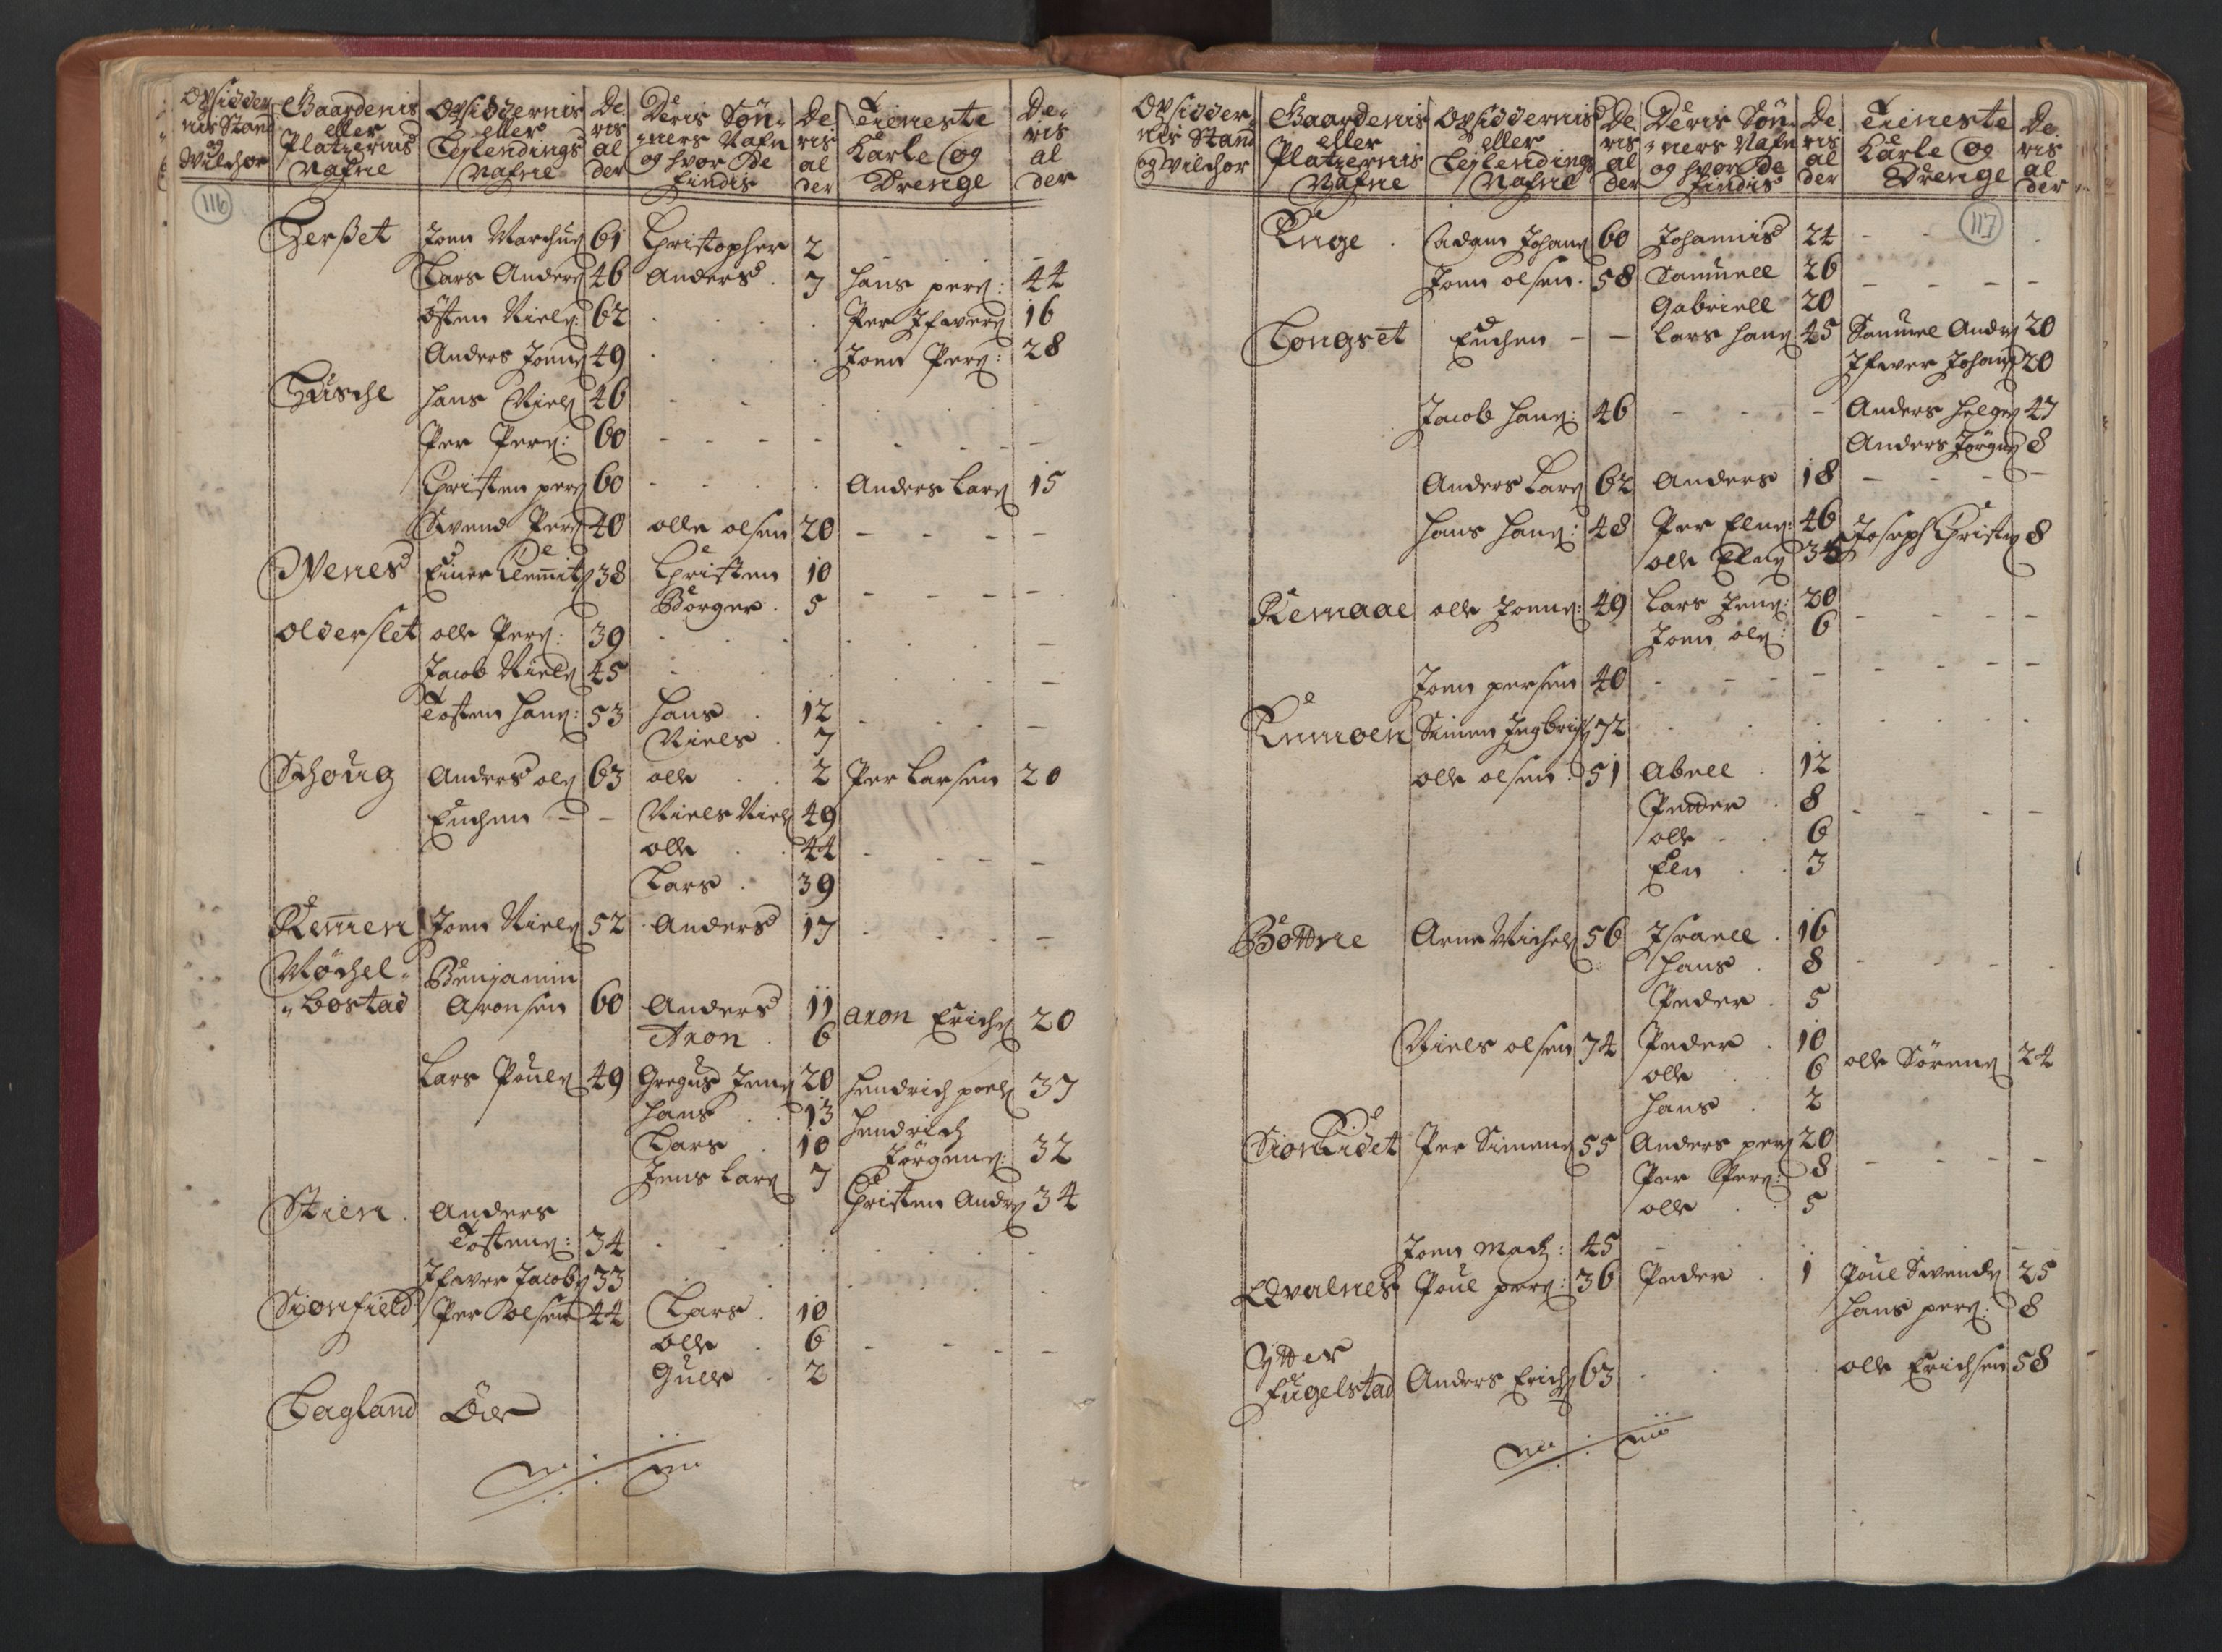 Opsidder nis Stand og Vilchor | Gaardenis eller Platzernis Nafne | Opsiddernis eller Leylendings Nafne | De ris al der | Deris Søn ners Nafn og hvor De findis | De ris al der | Tieneste Karle og Drenge | De ris al der
116
Joen 61 Christopher 2
Lars Anders 46 Anders 7 Hans pers: 44
östen Niels: 62 Per Ifvers 16
Anders Joens 49 Joen Pers: 28
Hans Niels 46
Per Pers: 60
Christen pers 60 Anders Lars 15
Svend Pers 40 olle olsen 20
Venes Einer 38 Christen 10
Börger 5
olderslet olle Pers: 39
Jacob Niels 45
Tosten Hans: 53 Hans 12
Niels 7
Schoug Anders ols 63 olle 2 Per Larsen 20
Enchen Niels Niels 49
olle 44
Lars 39
Remen Joen Niels 52 Anders 17
Möchel- Benjamin
bostad Aronsen 60 Anders 11 aron Erichs 20
Aron 6
Lars Pouls 49 Gregus Jens 20 Hendrich poels 37
Hans 13 Hendrich
Lars 10 Jörgens: 32
Jens Lars 7 Christen Anders 34
Stien Anders
Tostens: 34
Ifver Jacobs 33
Sionfield Per olsen 44 Lars 10
olle 6
Gulle 2
Lagland Öde
Opsidder nis Stand og Vilchor | Gaardenis eller Platzernis Nafne | Opsiddernis eller Leylendings Nafne | De ris al der | Deris Søn ners Nafn og hvor De findis | De ris al der | Tieneste Karle og Drenge | De ris al der
117
Enge Adam Johans 60 Johannis 24
Joen olsen 58 Samuell 26
Gabriell 20
Longset Enchen Lars Hans 45 Samuel Anders 20
Ifver Johans 20
Jacob Hans: 46 Anders Helges 47
Anders Jörgens 8
Anders Lars 62 Anders 18
Hans Hans: 48 Per Elns: 46 Joseph Christens 8
olle Elns 34
Remaae olle Joens: 49 Lars Jens: 20
Joen ols: 6
Joen persen 40
Simen Ingbrigts 72
olle olsen 51 Abell 12
Peder 8
olle 6
Elen 3
Böttne Arne Michels 56 Israell 16
Hans 8
Peder 5
Niels olsen 74 Peder 10
olle 6 olle Sörens 24
Hans 2
Sionlidet Per Simens 55 Anders pers 20
Per Pers: 8
olle 5
Joen Mads: 45
Qvalnes Poul pers: 36 Peder 1 Poul Svends 25
Hans pers: 8
Ytter
Fugelstad Anders Erichs 63 olle Erichsen 58